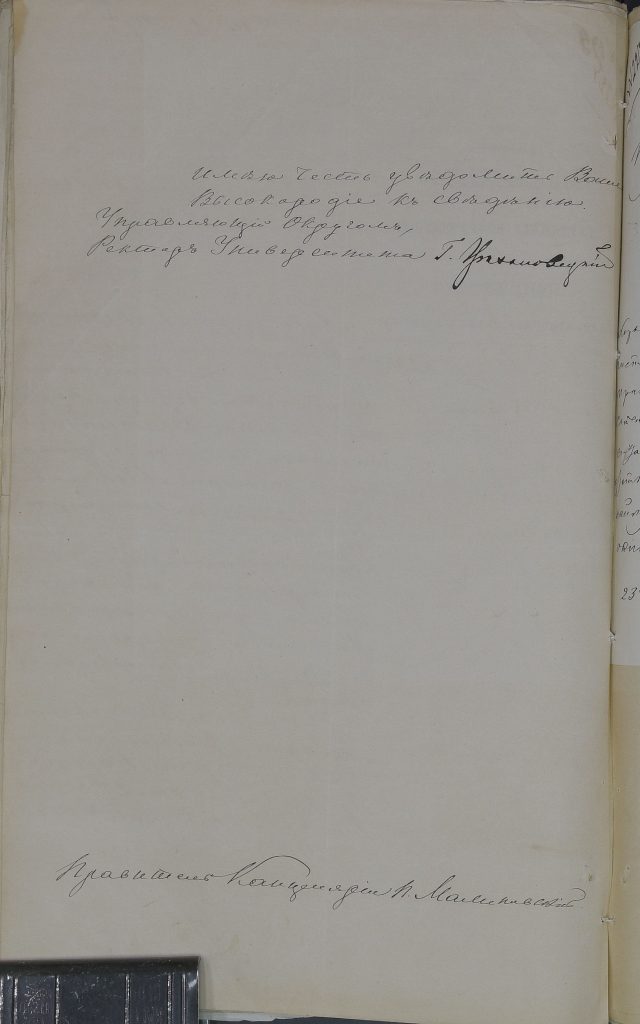 имѣю честь увѣдомить Ваше
Высокородіе къ свѣдѣнію.
Управляющій Округомъ,
Ректоръ Университета Г.
Правитель Канцеляріи П. Малиновскій